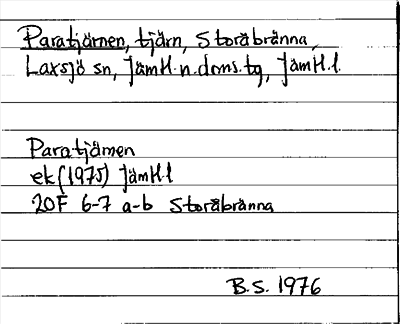 Paratjärnen, tjärn, Storåbränna,
Laxsjö sn, Jämtl.n.doms.tg, Jämtl.l.
Paratjärnen
ek (1975) Jämtl.l
20F 6-7 a-b Storåbränna
B.S. 1976